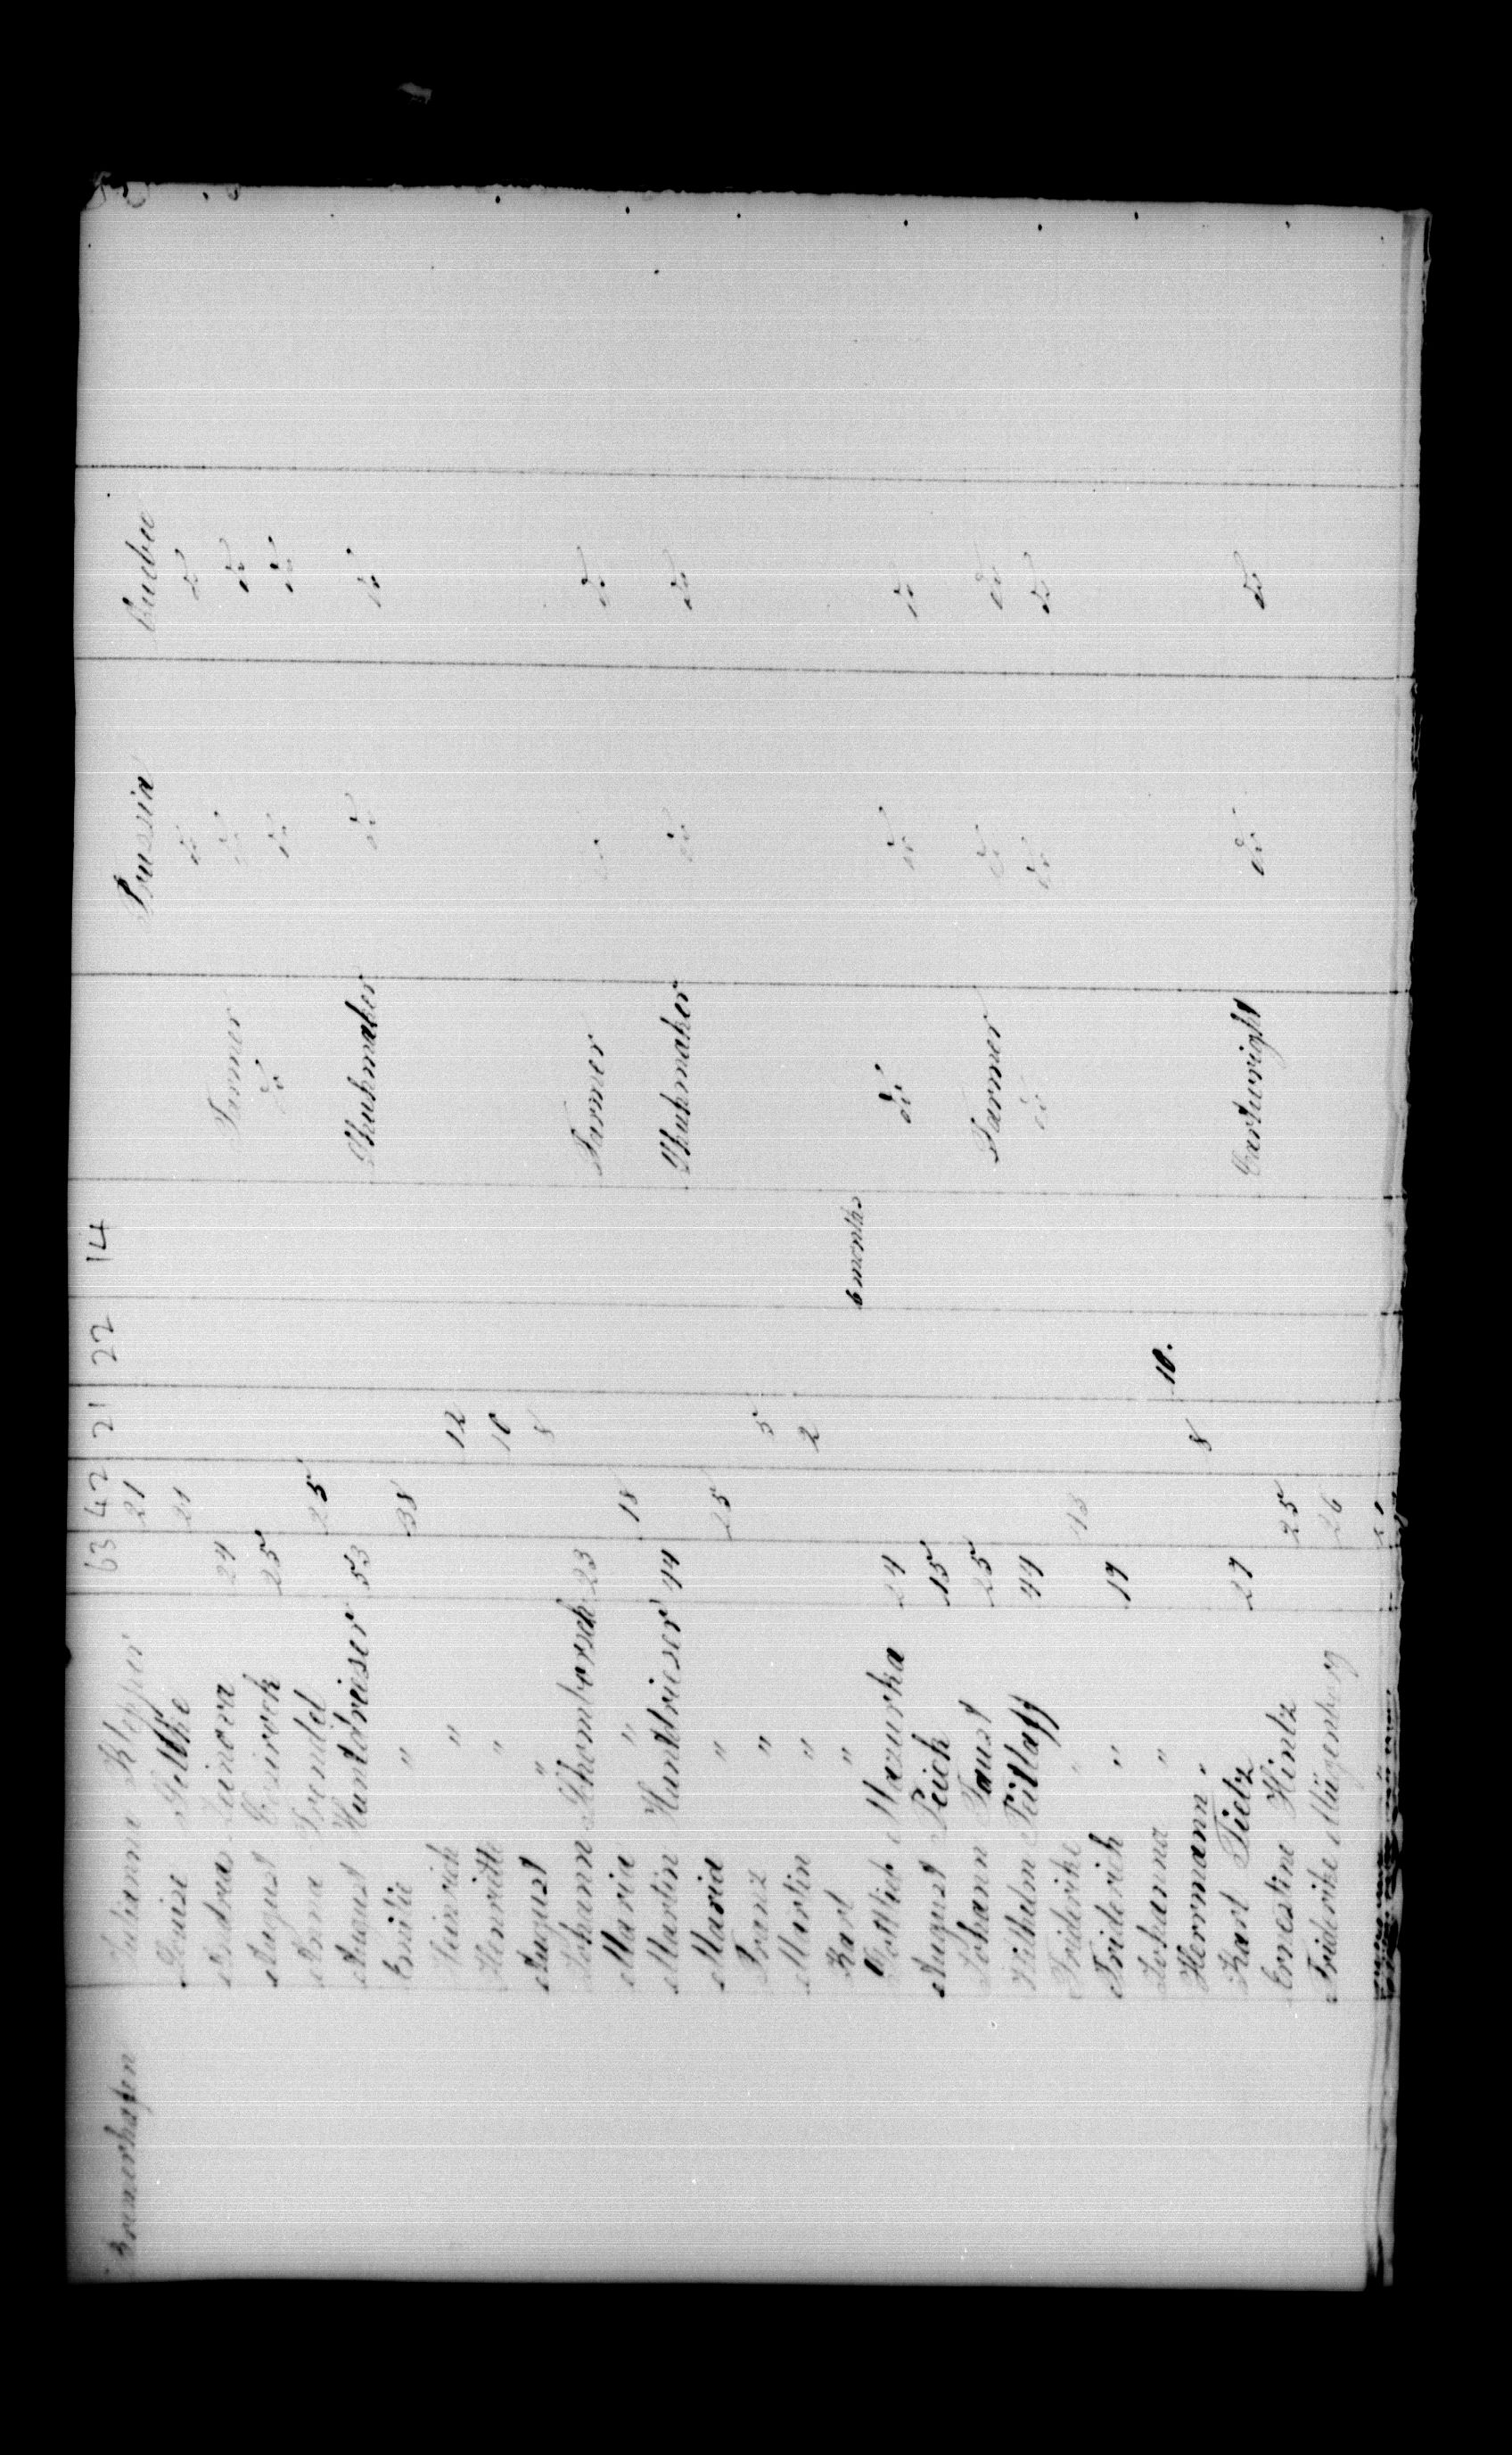 63 42 21 22 14
Bremerhafen Julianne Klepper 21 Prussia Quebec
Louise Gellke 21 do do
Andreas 24 Farmer do do
August 25 do do do
Anna Frendel 25
August Hundrieser 53 Shuhmaker do do
Emilie " 38
Heinrich " 12
Henriette " 10
August " 8
Johann 23 Farmer do do
Maria " 18
Martin Hundrieser 44 Shuhmaker do do
Maria " 25
Franz " 5
Martin " 2
Karl " 6 months
Gottlieb Mazurka 24 do do do
August Peick 15
Johann Faust 25 Farmer do do
Wilhelm Tetlaff 44 do do do
Friderike " 43
Friderich " 19
Johanna " 10.
Herrmann " 8
Karl Tietz 27 Cartwright do do
Ernestine Hintz 25
Friderike Mügenburg 26